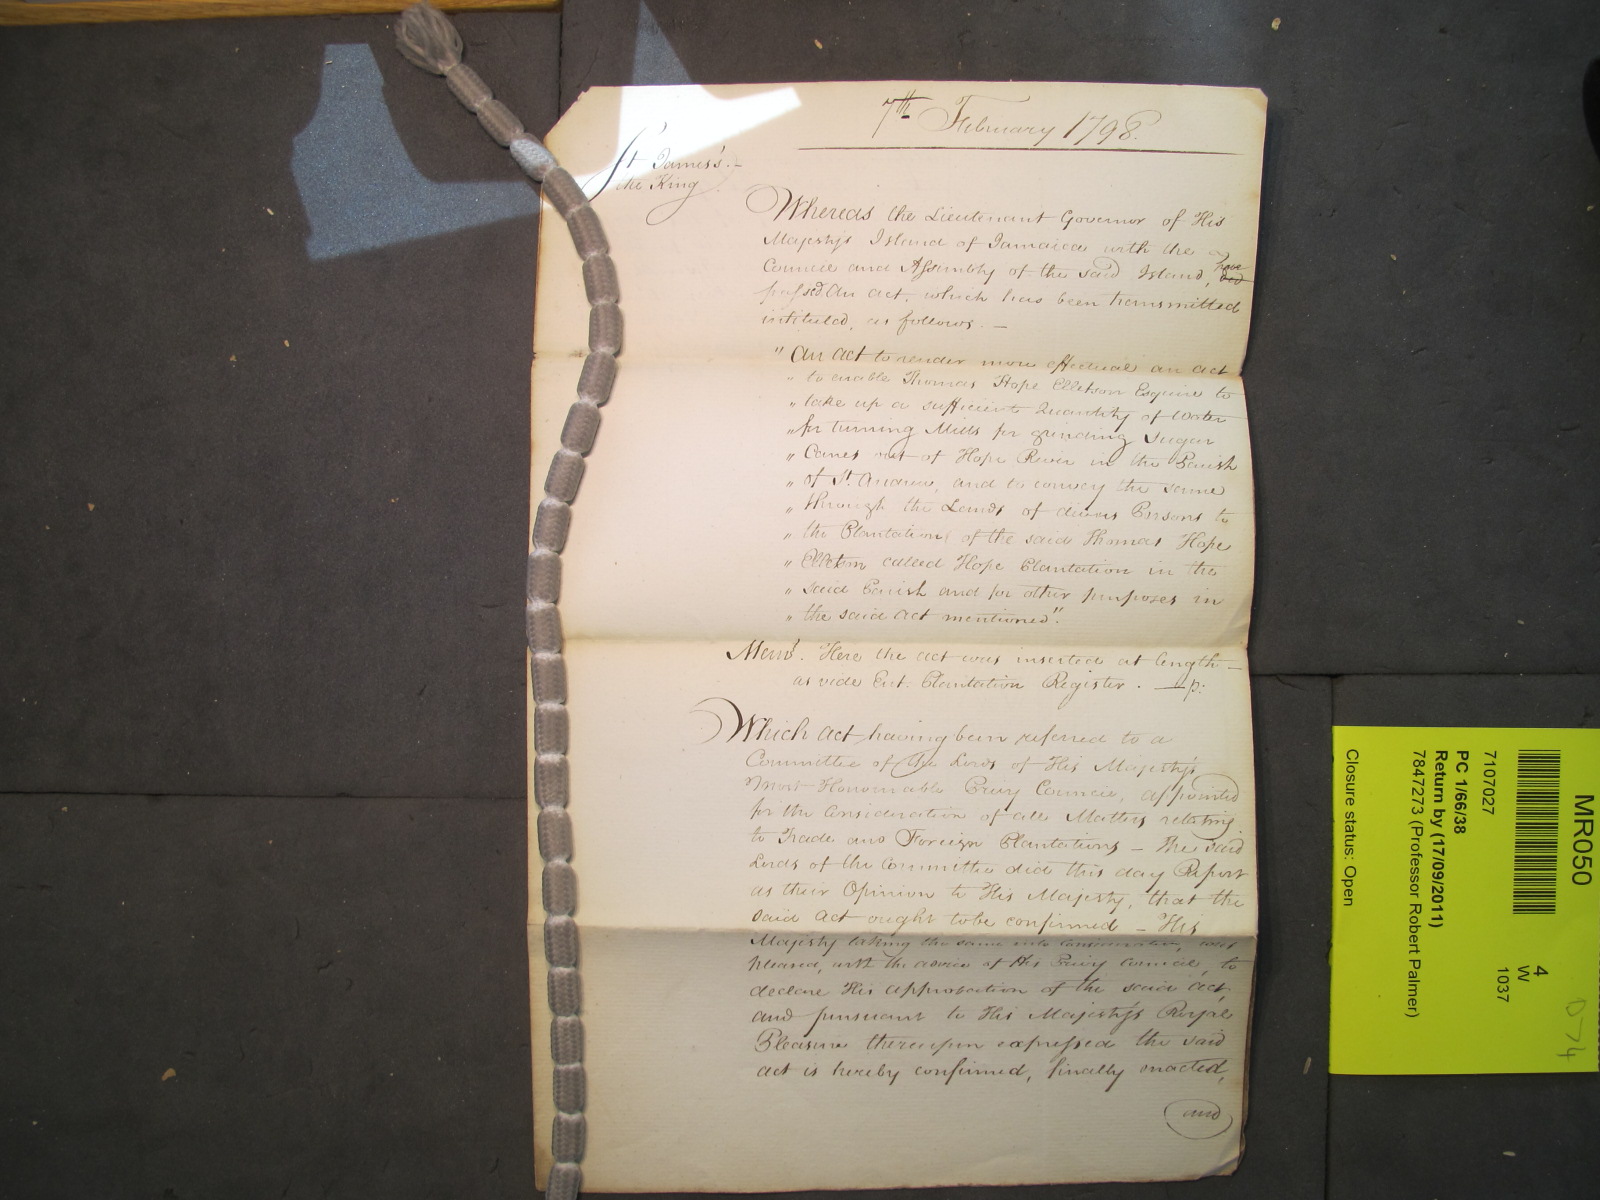 7th February 1798.
St James's.
the King
Whereas the Lieutenant Governor of His
Majesty's Island of Jamaica with the
Council and Assembly of the said Island, have
passed An act, which has been transmitted
intituled, as follows. —
" An act to render more effectual an act
" to enable Thomas Hope Elletson Esquire to
" take up a sufficient Quantity of Water
" for turning Mills for grinding Sugar
" Canes out of Hope River in the Parish
" of St. Andrew, and to convey the same
" through the Lands of divers Persons to
" the Plantation of the said Thomas Hope
" Elletson called Hope Plantation in the
" said Parish and for other purposes in
" the said Act mentioned".
Memd. Here the act was inserted at length —
as vide Ent. Plantation Register. — p:
Which Act having been referred to a
Committee of the Lords of His Majesty's
Most Honourable Privy Council, appointed
for the Consideration of all Matters relating
to Trade and Foreign Plantations — The said
Lords of the Committee did this day Report
as their Opinion to His Majesty, that the
said Act ought to be confirmed — His
Majesty taking the same into Consideration, was
pleased, with the advice of His Privy Council, to
declare His approbation of the said Act,
and pursuant to His Majesty's Royal
Pleasure thereupon expressed the said
act is hereby confirmed, finally enacted,
and
MR050
4
W
1037
7107027
PC 1/66/38
Return by (17/09/2011)
7847273 (Professor Robert Palmer)
Closure status: Open